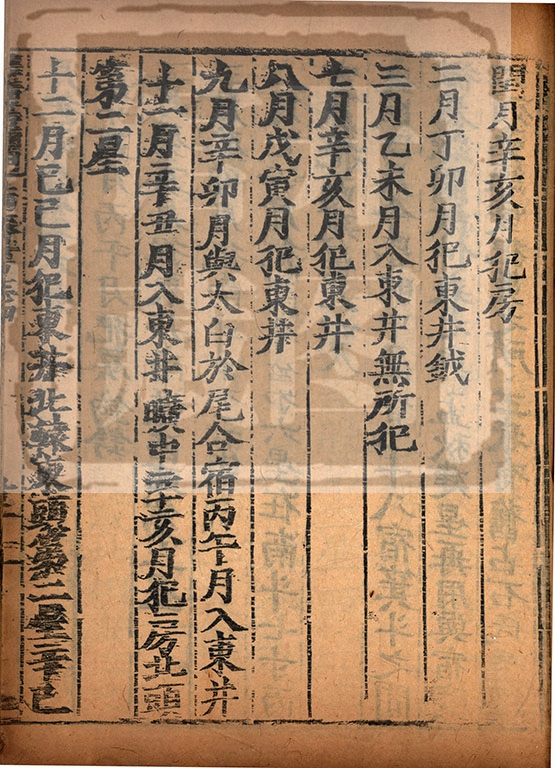 閏月辛亥月犯房
二月丁卯月犯東井鉞
三月乙未月入東井無所犯
七月辛亥月犯東井
八月戊寅月犯東井
九月辛卯月與太白於尾合宿丙午月入東井
十一月辛丑月入東井 亥月犯房北頭
第二星
十二月己巳月犯東井北轅東頭第二星辛巳